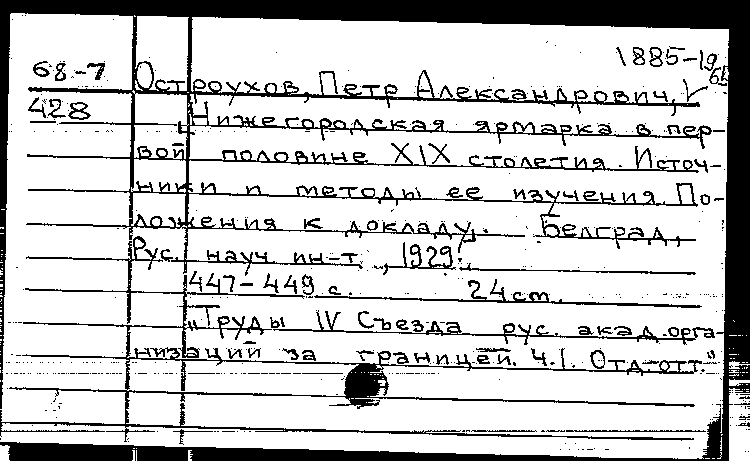 1885-1965
68-7 Остроухов, Петр Александрович,
428 Нижегородская ярмарка в пер-
вой половине XIX столетия. Источ-
ники и методы ее изучения. По-
ложения к докладу. Белград,
Рус. науч. ин-т, 1929.
447-449 с. 24 cm.
"Труды IV Съезда рус. акад. орга-
низаций за границей. Ч.I. Отд. отт."